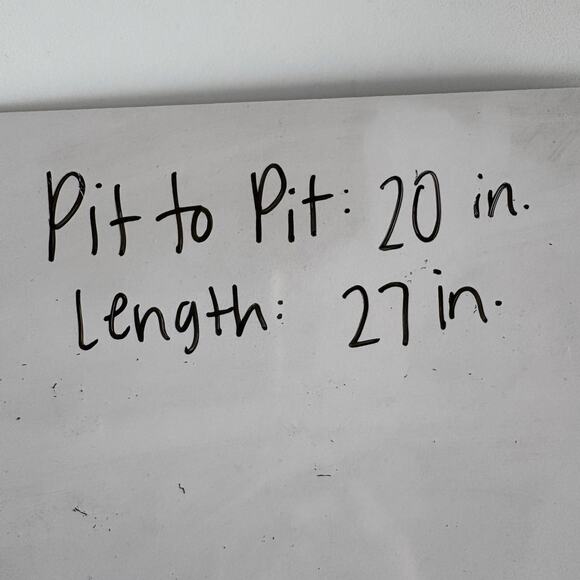 Pit to Pit: 20 in.
Length: 27 in.